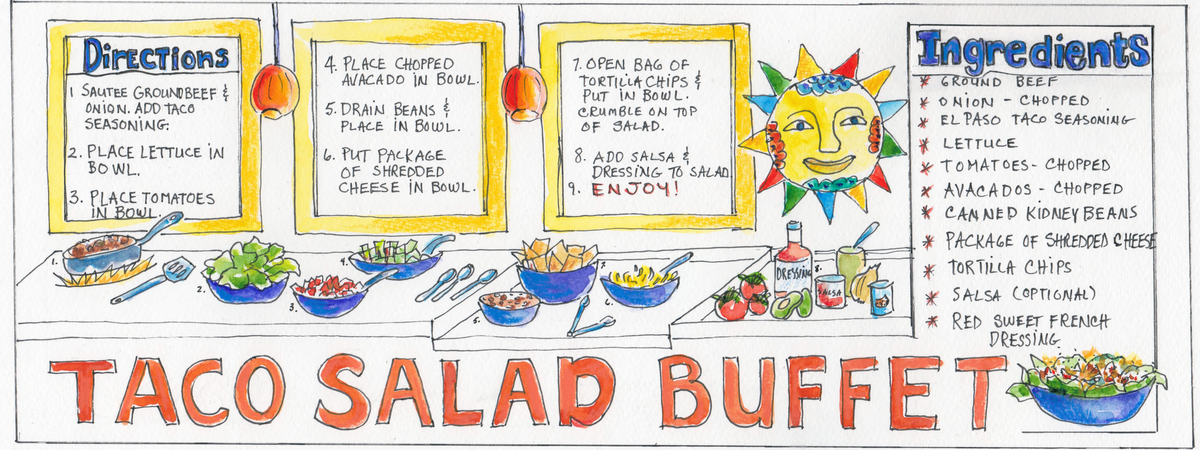 Directions
1 SAUTEE GROUNDBEEF &
ONION. ADD TACO
SEASONING.
2. PLACE LETTUCE IN
BOWL.
3. PLACE TOMATOES
IN BOWL.
4. PLACE CHOPPED
AVACADO IN BOWL.
5. DRAIN BEANS &
PLACE IN BOWL.
6. PUT PACKAGE
OF SHREDDED
CHEESE IN BOWL.
7. OPEN BAG OF
TORTILLA CHIPS &
PUT IN BOWL.
CRUMBLE ON TOP
OF SALAD.
8. ADD SALSA &
DRESSING TO SALAD.
9. ENJOY!
Ingredients
* GROUND BEEF
* ONION - CHOPPED
* EL PASO TACO SEASONING
* LETTUCE
* TOMATOES - CHOPPED
* AVACADOS - CHOPPED
* CANNED KIDNEY BEANS
* PACKAGE OF SHREDDED CHEESE
* TORTILLA CHIPS
* SALSA (OPTIONAL)
* RED SWEET FRENCH
DRESSING
1.
2.
3.
4.
5.
7.
6.
DRESSING
8.
SALSA
TACO SALAD BUFFET